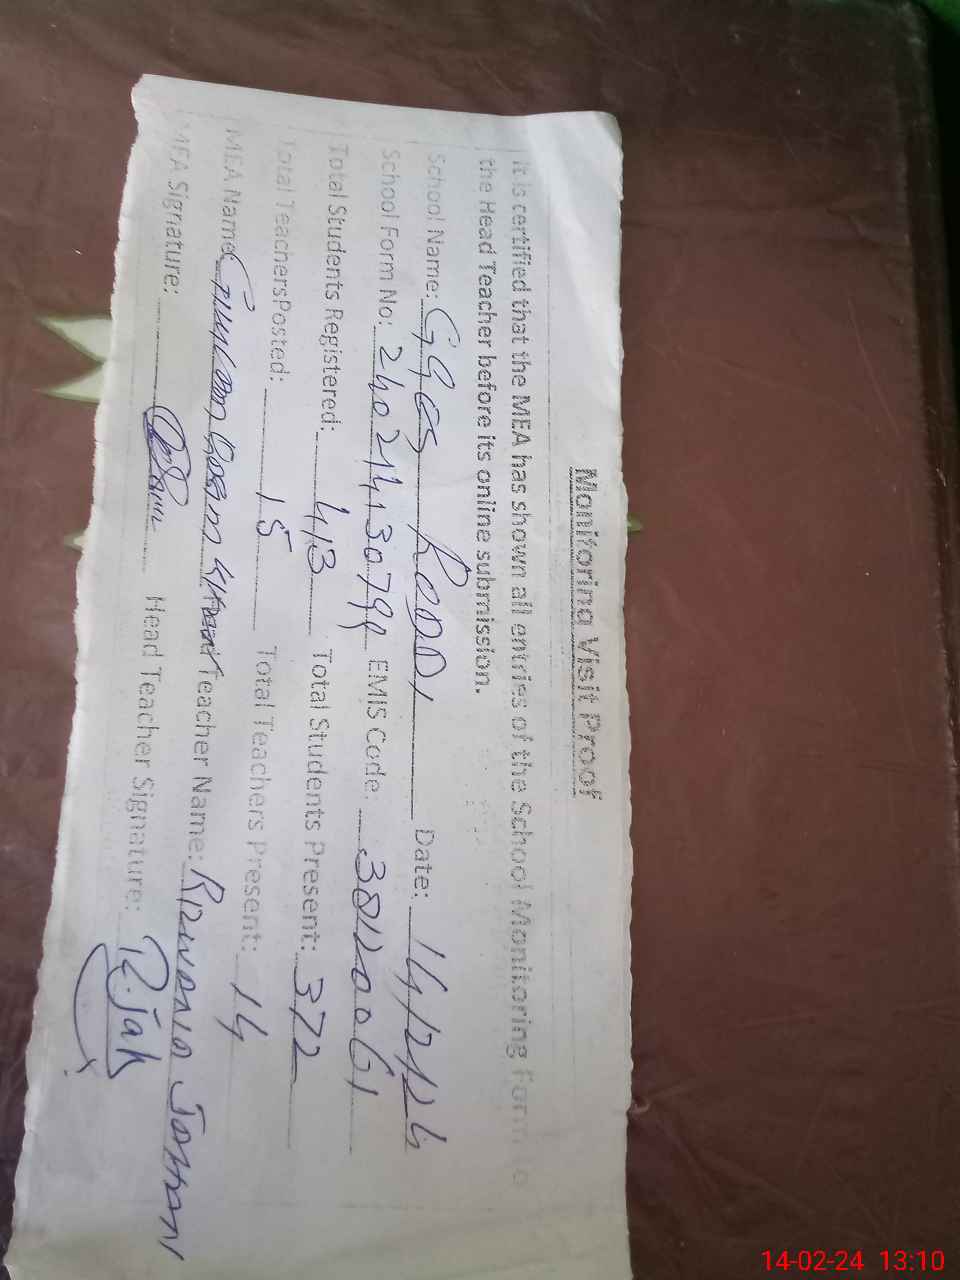 Monitoring Visit Proof
It is certified that the MEA has shown all entries of the School Monitoring Form to
the Head Teacher before its online submission.
School Name: GGES Date: 14/2/24
School Form No: EMIS Code:
Total Students Registered: 413 Total Students Present: 372
Total Teachers Posted: 15 Total Teachers Present: 14
MEA Name: Head Teacher Name: Rizwana Jahan
MEA Signature: Head Teacher Signature: R.Jah
14-02-24 13:10